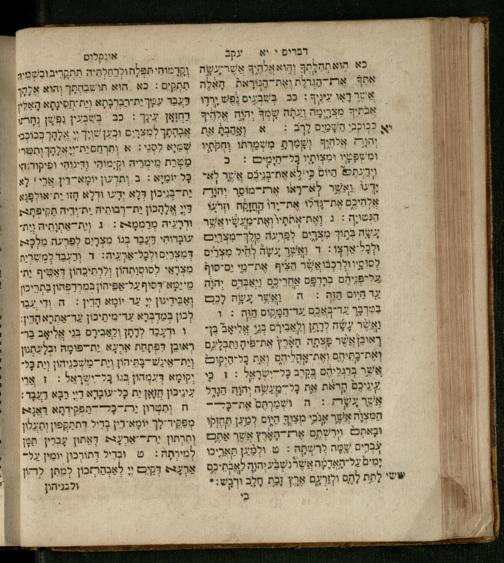 דברים י יא עקב
אונקלוס
כא הוא תהלתך והוא אלהיך אשר עשה
אתך את הגדלת ואת הנוראת האלה
אשר ראו עיניך : כב בשבעים נפש ירדו
אבתיך מצרימה ועתה שמך יהוה אלהיך
ככוכבי השמים לרב : א ואהבת את
יא
יהוה אלהיך ושמרת משמרתו וחקתיו
ומשפטיו ומצותיו כל הימים : ב
וידעתם היום כי לא את בניכם אשר לא
ידעו ואשר לא ראו את מוסר יהוה
אלהיכם את גדלו את ידו החזקה וזרעו
הנטויה : ג ואת אתתיו ואת מעשיו אשר
עשה בתוך מצרים לפרעה מלך מצרים
ולכל ארצו : ד ואשר עשה לחיל מצרים
לסוסיו ולרכבו אשר הציף את מי ים סוף
על פניהם ברדפם אחריכם ויאבדם יהוה
עד היום הזה : ה ואשר עשה לכם
במדבר עד באכם עד המקום הזה : ו
ואשר עשה לדתן ולאבירם בני אליאב בן
ראובן אשר פצתה הארץ את פיה ותבלעם
ואת בתיהם ואת אהליהם ואת כל היקום
אשר ברגליהם בקרב כל ישראל : ז כי
עיניכם הראת את כל מעשה יהוה הגדל
אשר עשה : ח ושמרתם את כל
המצוה אשר אנכי מצוך היום למען תחזקו
ובאתם וירשתם את הארץ אשר אתם
עברים שמה לרשתה : ט ולמען תאריכו
ימים על האדמה אשר נשבע יהוה לאבתיכם
לתת להם ולזרעם ארץ זבת חלב ודבש :
ששי
כי
וקדמוהי תפלח ולדחלתיה תתקריב ובשמיה
תתקיים : כא הוא תושבחתך והוא אלהך
דעבד עמך ית רברבתא וית חסינתא האלין
דחזאן עינך : כב בשבעין נפשן נחתו
אבהתך למצרים וכען שויך יי אלהך ככוכבי
שמיא לסגי : א ותרחם ית יי אלהך ותטר
מטרת מימריה וקימוהי ודינוהי ופיקודוהי
כל יומיא : ב ותדעון יומא דין ארי לא
ית בניכון דלא ידעו ודלא חזו ית אולפנא
דיי אלהכון ית רבותיה ית ידיה תקיפתא
ודרעיה מרממא : ג וית אתותיה וית
עובדוהי דעבד בגו מצרים לפרעה מלכא
דמצרים ולכל ארעיה : ד ודעבד למשרית
מצראי לסוסותהון ולרתיכהון דאטיף ית
מי ימא דסוף על אפיהון במרדפהון בתריכון
ואבידינון יי עד יומא הדין : ה ודי עבד
לכון במדברא עד מיתיכון עד אתרא הדין :
ו ודעבד לדתן ולאבירם בני אליאב בר
ראובן דפתחת ארעא ית פומה ובלעתנון
וית אינש בתיהון וית משכניהון וית כל
יקומא דעמהון בגו כל ישראל : ז ארי
עיניכון חזאן ית כל עובדא דיי רבא דעבד :
ח ותטרון ית כל תפקידתא דאנא
מפקידך יומא דין בדיל דתתקפון ותעלון
ותרתון ית ארעא דאתון עברין תמן
למירתה : ט ובדיל דתורכון יומין על
ארעא דקים יי לאבהתכון למתן להון
ולבניהון